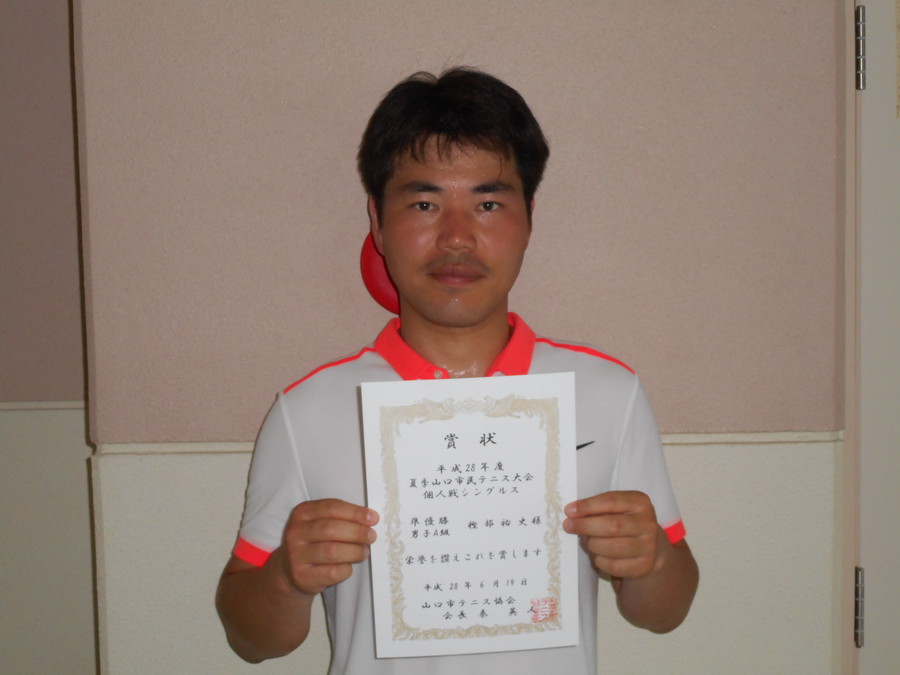 賞状
平成28年度
夏季山口市民テニス大会
個人戦シングルス
準優勝
男子A級 樫部祐史様
栄誉を讃えこれを賞します
平成28年6月19日
山口市テニス協会
会長 秦 英